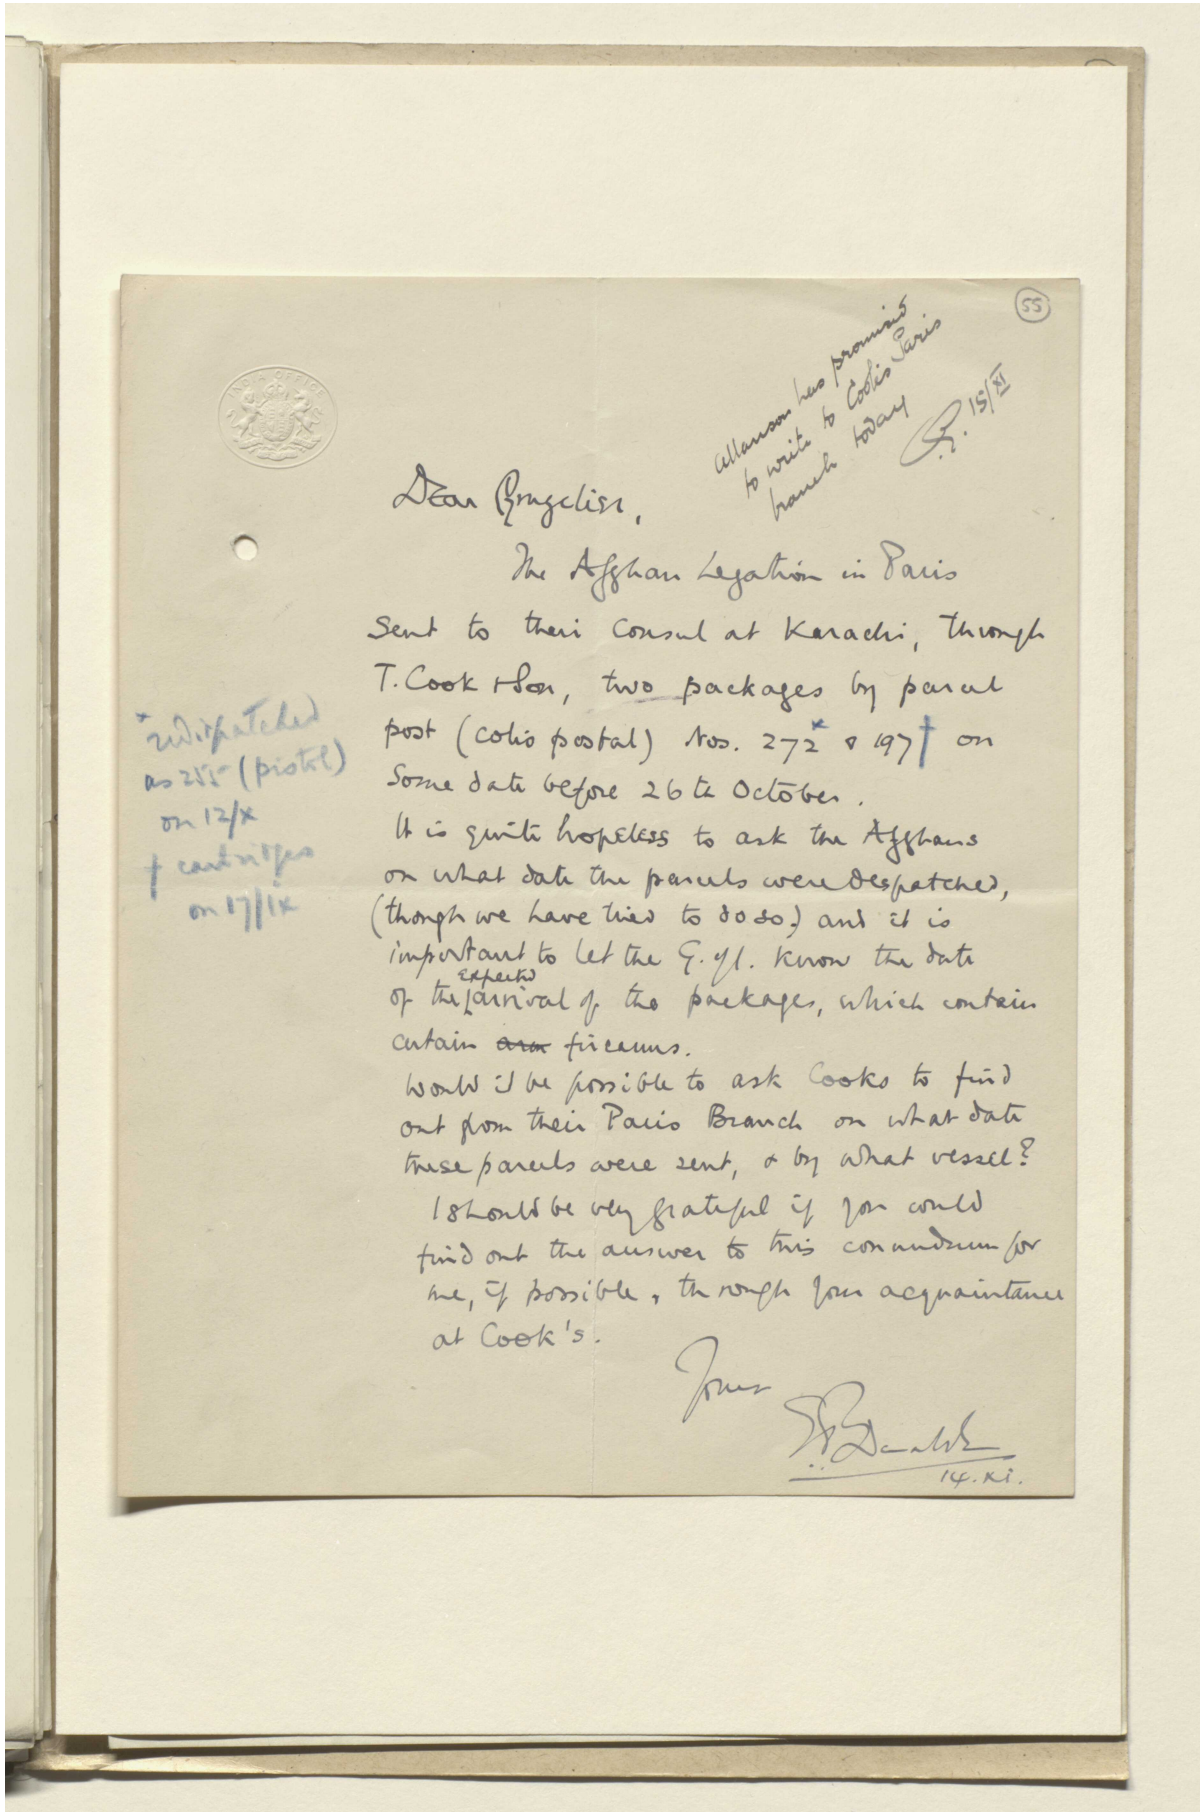 55
Allanson has promised
to write to Cooks Paris
branch today
15/XI
INDIA OFFICE
Dear
The Afghan Legation in Paris
sent to their Consul at Karachi, through
T. Cook & Son, two packages by parcel
post (colis postal) Nos. 272* & 197† on
some date before 26th October.
It is quite hopeless to ask the Afghans
on what date the parcels were despatched,
(though we have tried to do so.) and it is
important to let the G. of I. know the date
of the expected arrival of the packages, which contain
certain arm firearms.
Would it be possible to ask Cooks to find
out from their Paris Branch on what date
these parcels were sent, & by what vessel?
I should be very grateful if you could
find out the answer to this conundrum for
me, if possible, through your acquaintance
at Cook's.
Yours
Donaldson
14.xi.
*redispatched
as 255 (pistol)
on 12/x
† cartridges
on 17/ix